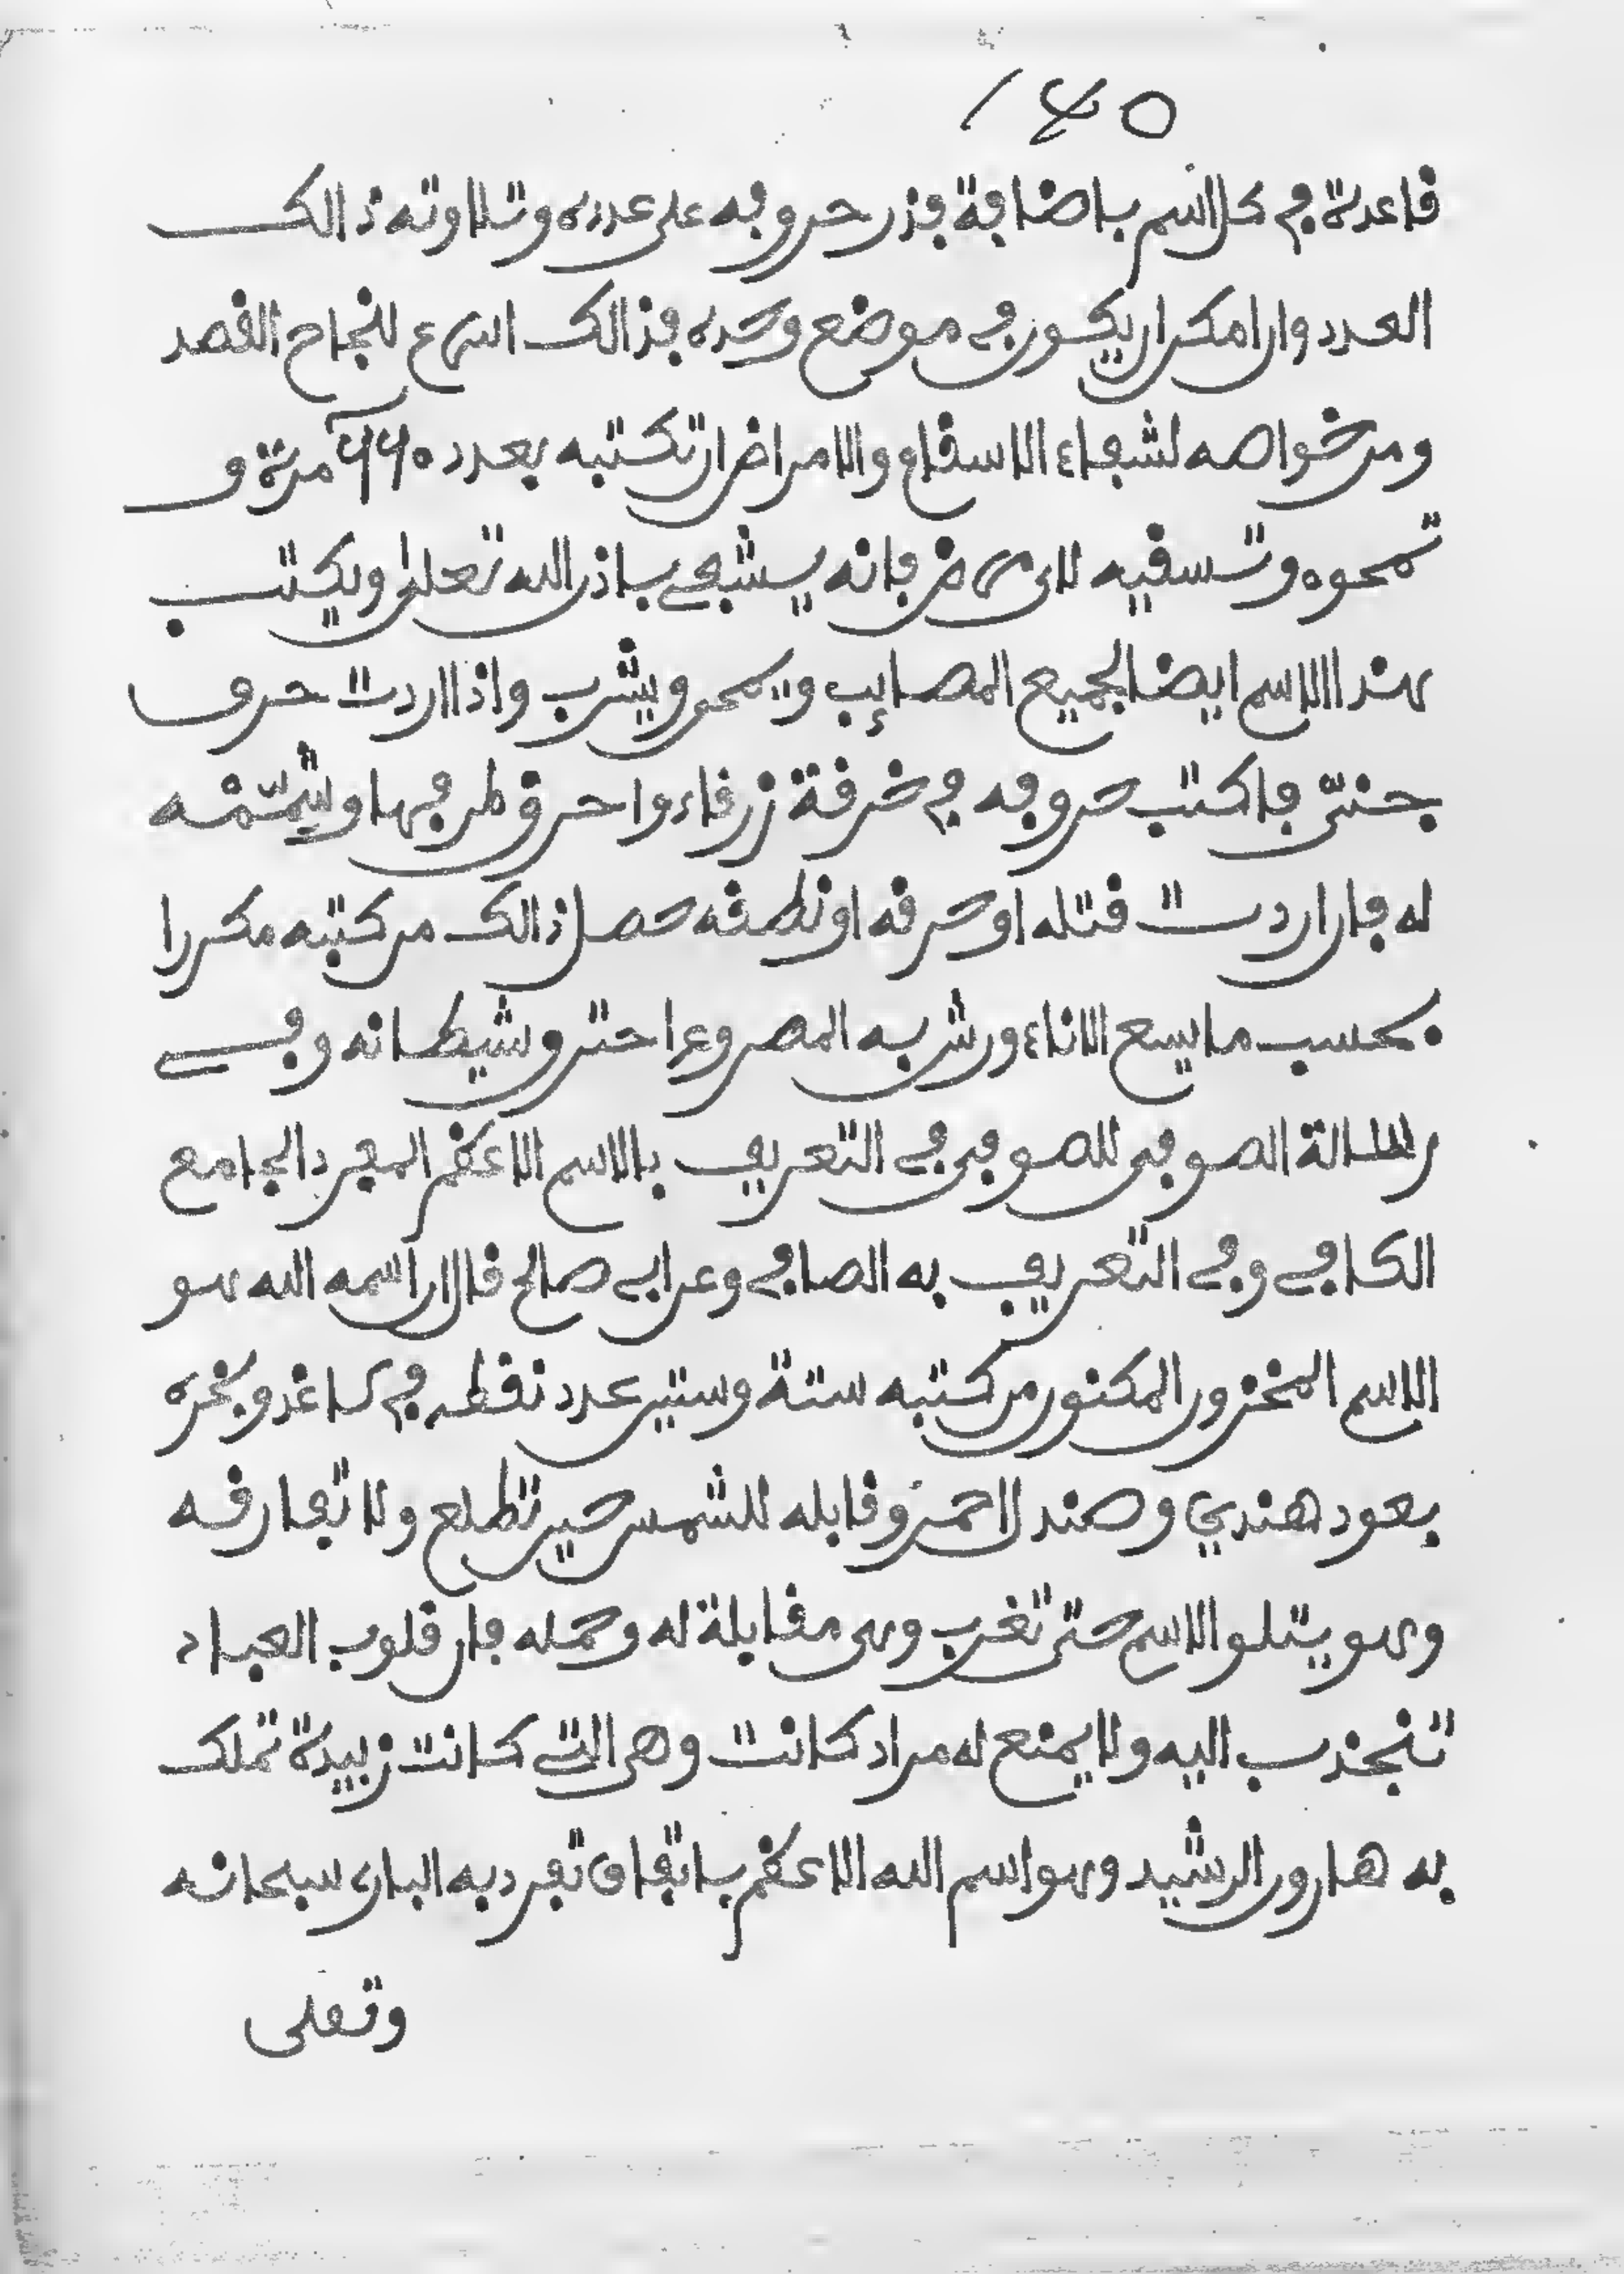 ١٤٥
قاعدة في كل اسم باضافة قدر حروفه على عدده وتلاوته ذالك
العدد وان امكن ان يكون في موضع وحده فذالك اسرع للنجاح القصد
ومن خواصه لشفاء الاسقام والامراض ان تكتبه بعدد ٦٦٠ مرة و
تمحوه وتسقيه لاي مرض فانه يشفى باذن الله تعلى ويكتب
هذا الاسم ايضا لجميع المصايب ويمحى ويشرب واذا اردت حرق
جنيّ فاكتب حروفه في خرقة زرقاء واحرق طرفها وشمّمه
له فان اردت قتله او حرقه او نطقه حصل ذالك من كتبه مكررا
بحسب ما يسع الاناء ورش به المصروع احترق شيطانه وفي
رسالة الصوفي للصوفي في التعريف بالاسم الاعظم المفرد الجامع
الكافي وفي التعريف به الصافي وعن ابي صالح قال ان اسمه الله هو
الاسم المخزون المكنون من كتبه ستة وستين عدد نقطه في كاغد وبخره
بعود هندي وصندل احمر وقابله للشمس حين تطلع ولا تفارقه
وهو يتلو الاسم حتى تغرب وهي مقابلة له وحمله فان قلوب العباد
تنجذب اليه ولا يمنع له مراد كانت وهي التي كانت زبيدة تملك
به هارون الرشيد وهو اسم الله الاعظم باتفاق تفرد به الباري سبحانه
وتعلى